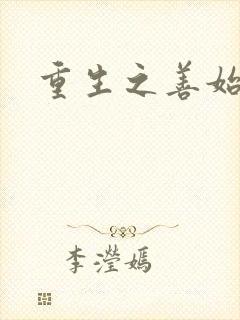 重生之善始
李滢嫣